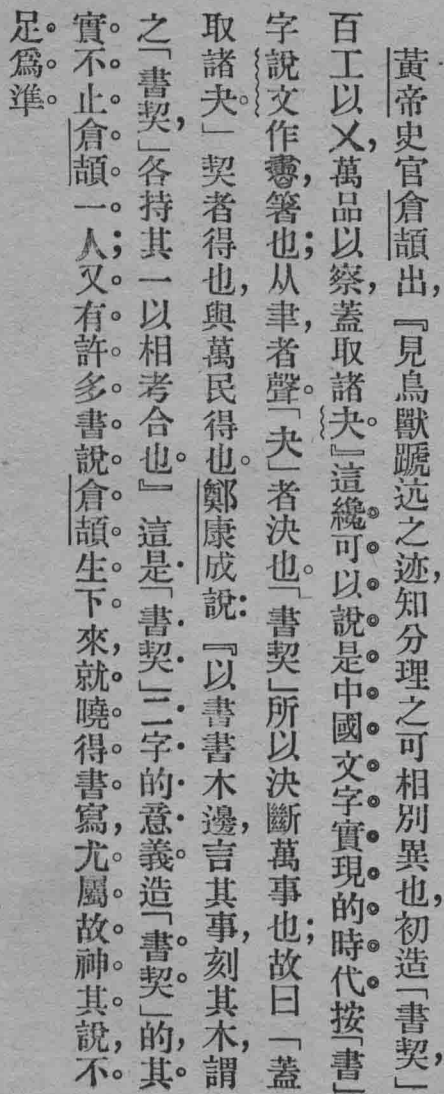 黃帝史官倉頡出，『見鳥獸蹏迒之迹，知分理之可相別異也，初造「書契，」
百工以乂，萬品以察，蓋取諸夬。』這纔可以說是中國文字實現的時代按「書」
字說文作書，箸也；从聿，者聲。「夬」者決也。「書契」所以決斷萬事也；故曰「蓋
取諸夬。」契者得也，與萬民得也。鄭康成說：『以書書木邊，言其事，刻其木，謂
之「書契，」各持其一以相考合也。』這是「書契」二字的意義。造「書契」的，其
實不止倉頡一人；又有許多書說倉頡生下來，就曉得書寫，尤屬故神其說，不
足爲準。